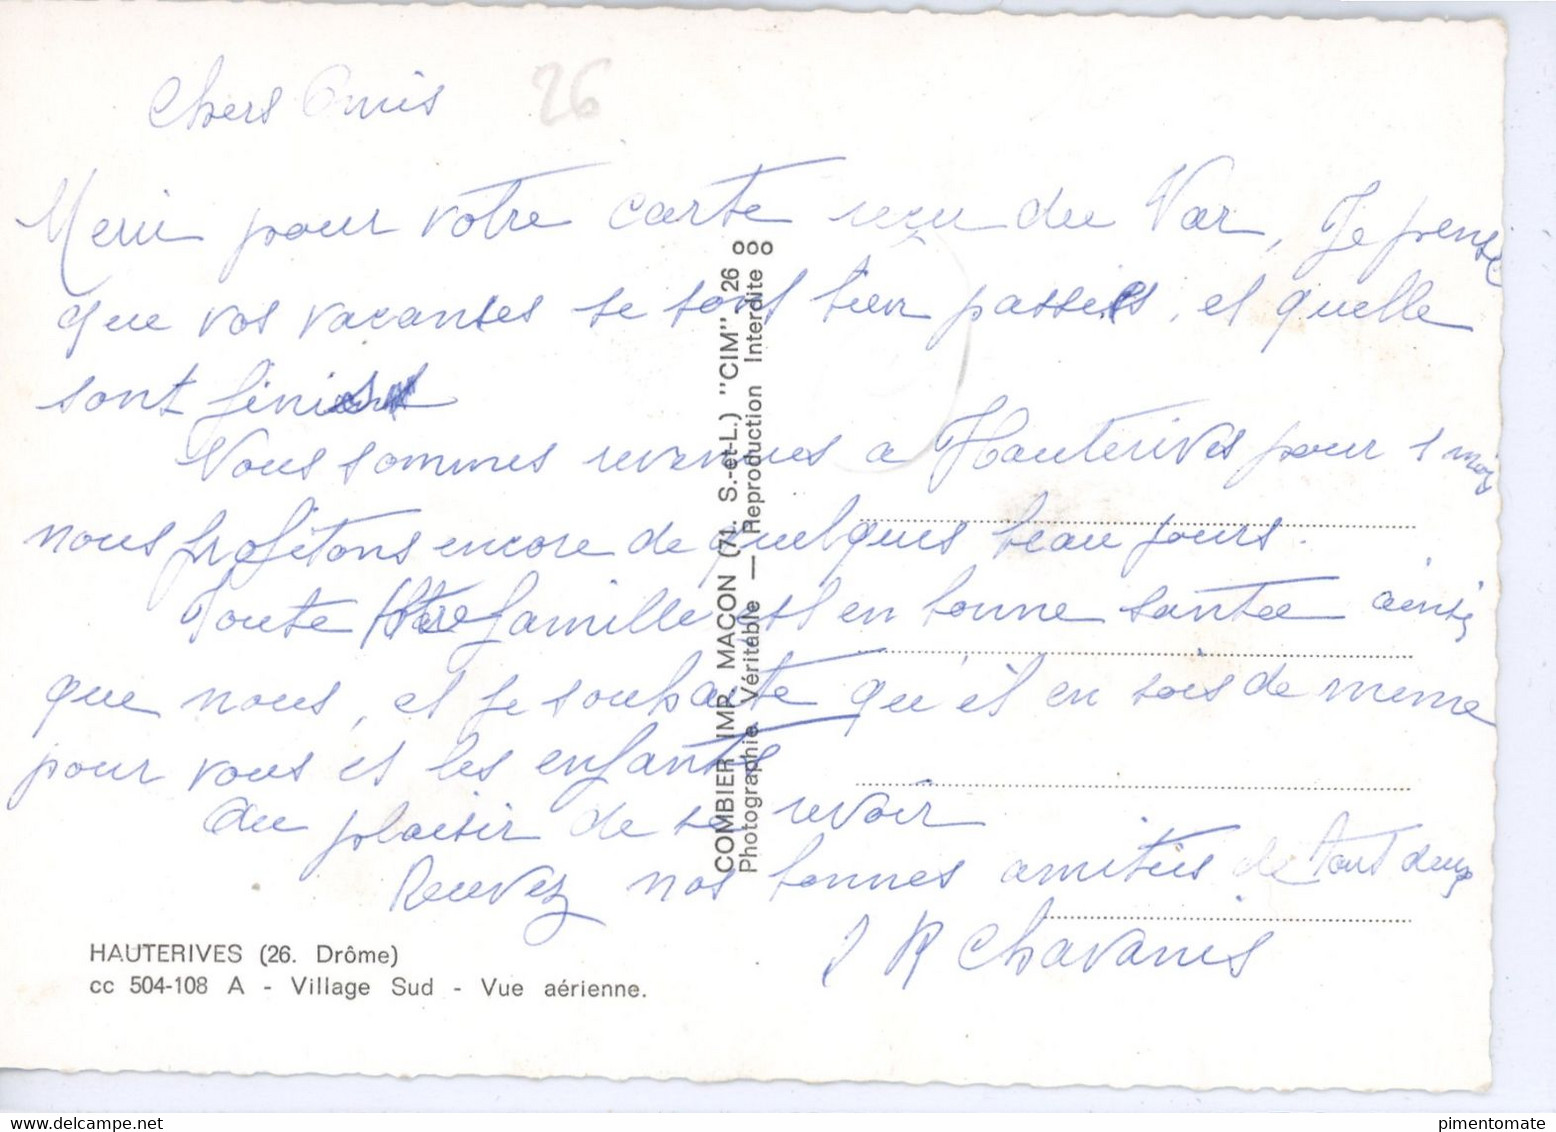 Chers Amis
26
Merci pour votre carte reçu du Var, Je pense
que vos vacances se sont bien passées, et quelle
sont finies
Nous sommes revenues a Hauterives pour 1 mois
nous profitons encore de quelques beau jours.
Toute Notre famille est en bonne santee ainsi
que nous, et je souhaite qu'il en sois de meme
pour vous et les enfants
Au plaisir de se revoir
Recevez nos bonnes amities de tout deux
R Chavanes
HAUTERIVES (26. Drôme)
cc 504-108 A - Village Sud - Vue aérienne.
COMBIER IMP. MACON (71. S.-et-L.) "CIM" 26
Photographie Véritable — Reproduction Interdite
www.delcampe.net
pimentomate